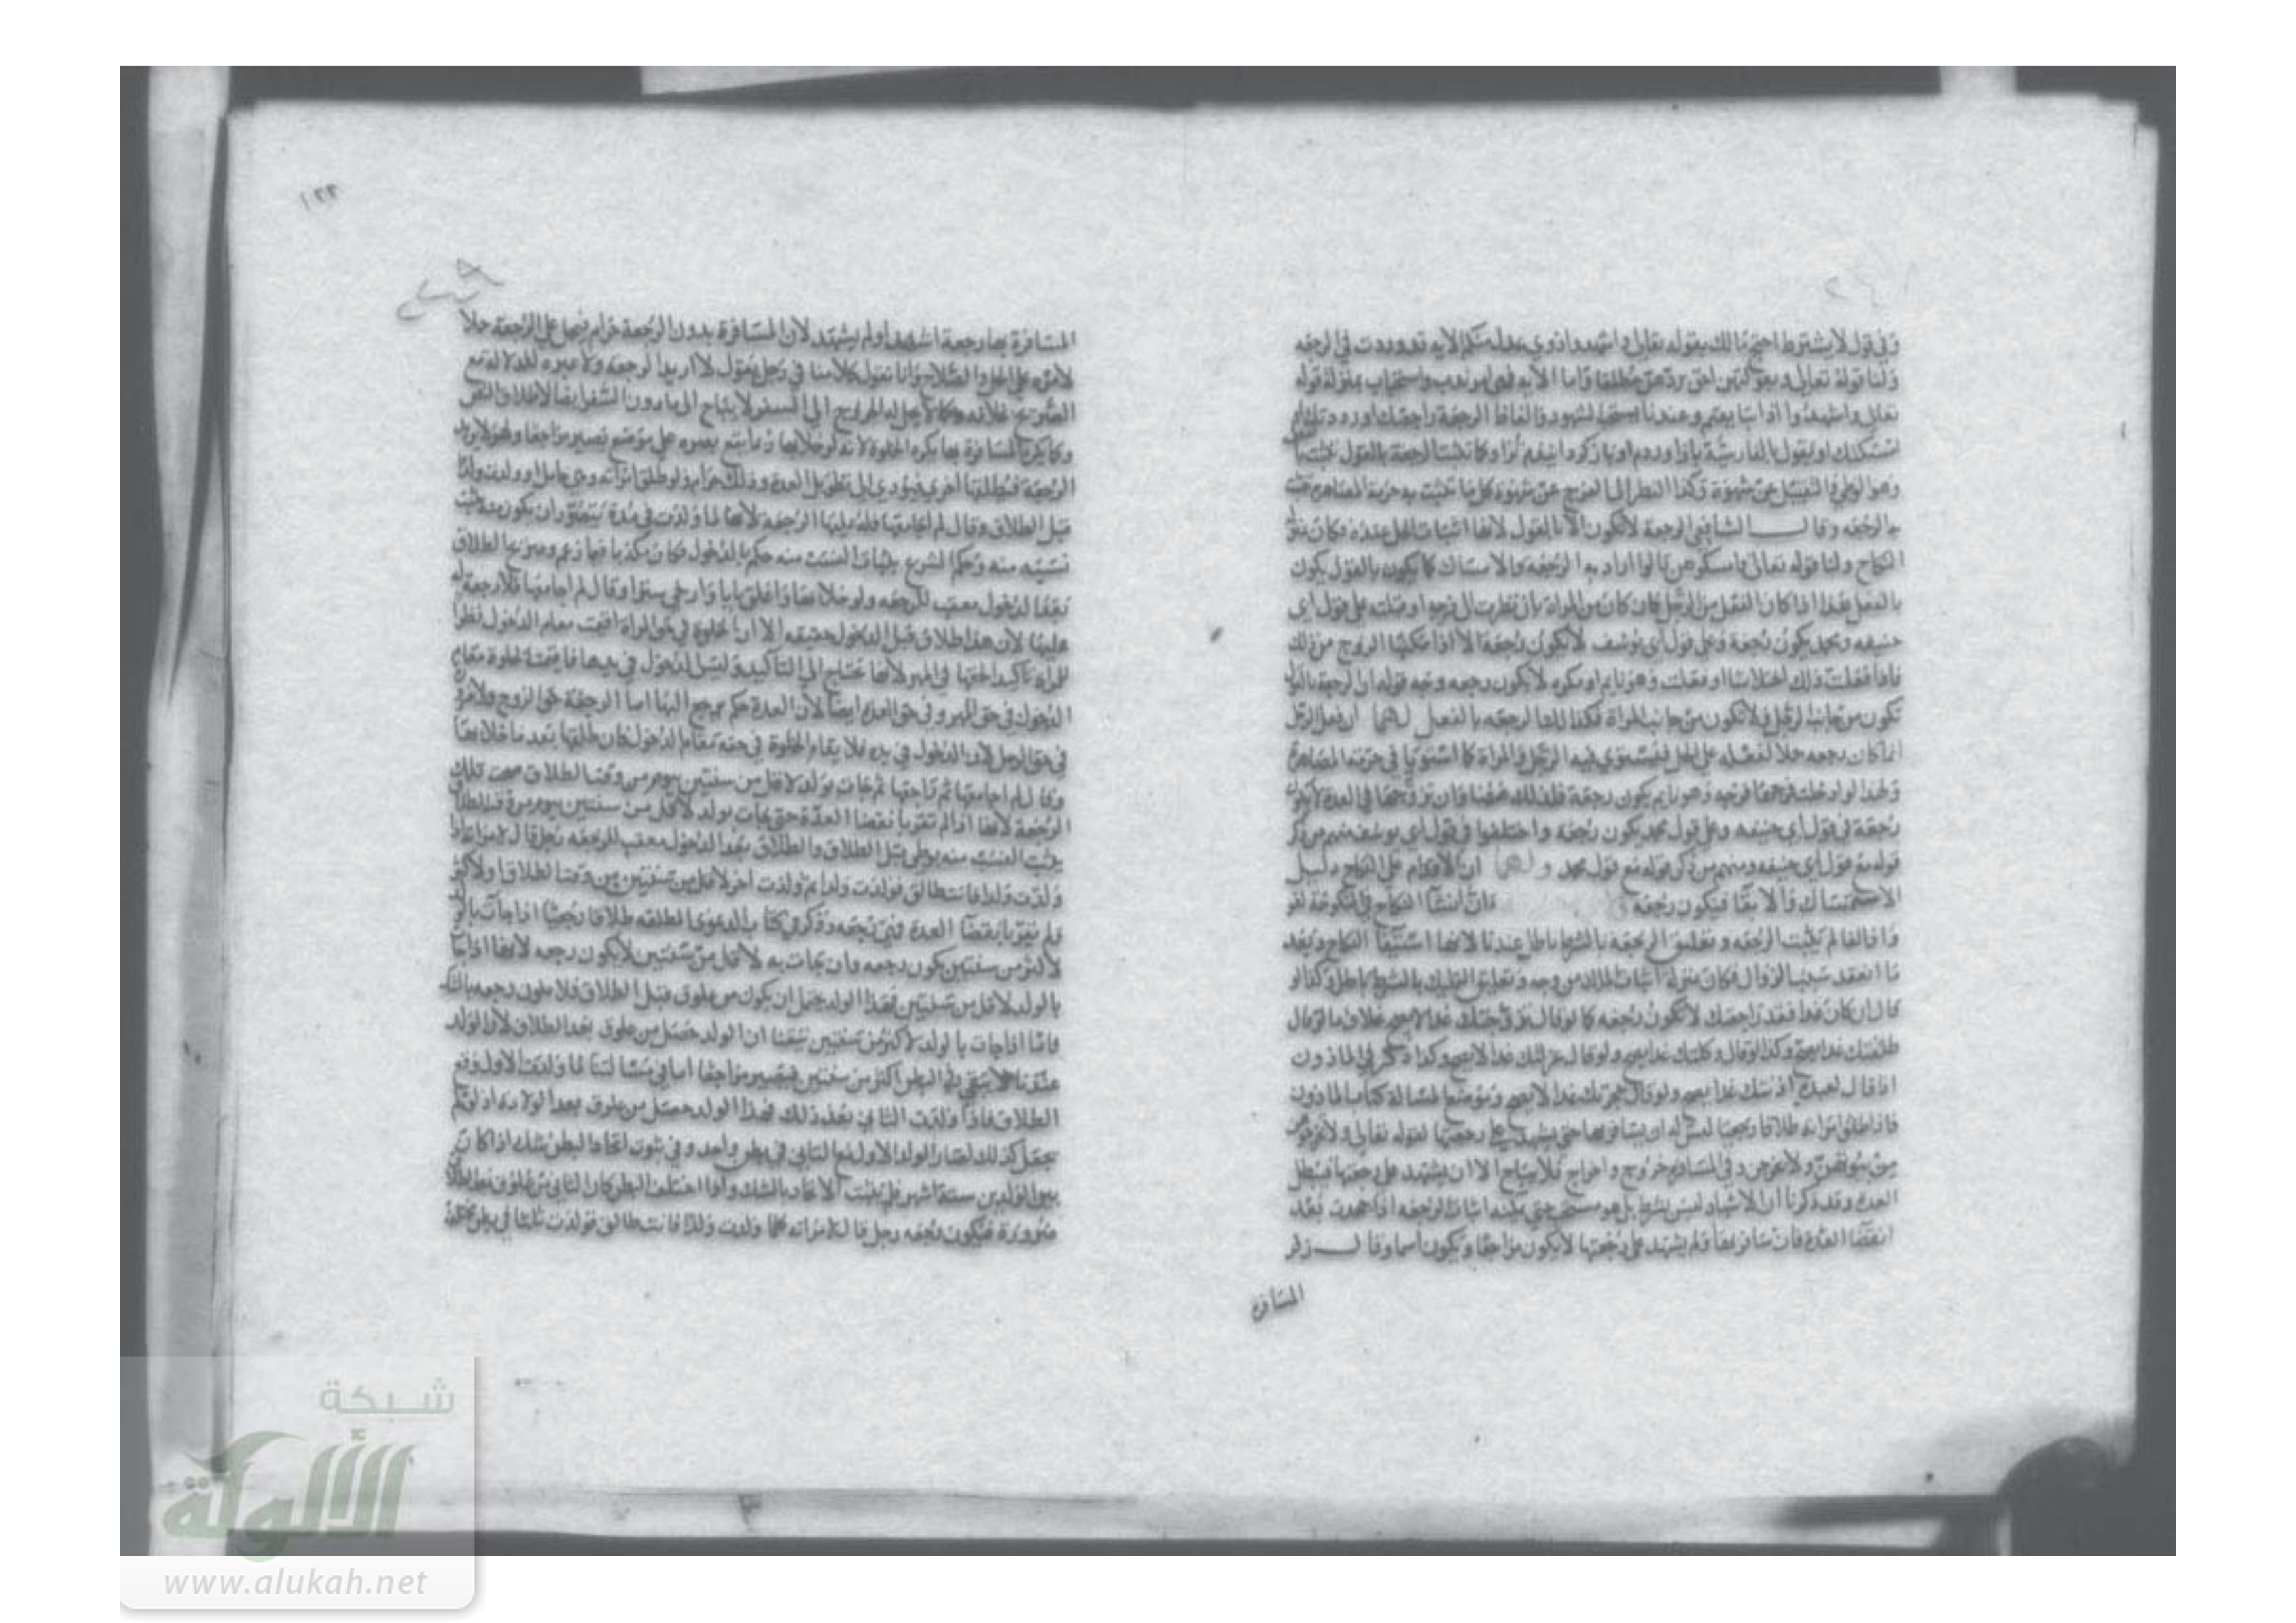 وفي قول لا يشترط احتج مالك بقوله تعالى واشهدوا ذوي عدل منكم الاية قد وردت في الرجعة
ولنا قوله تعالى وبعولتهن احق بردهن مطلقا واما الاية فهي امر ندب واستحباب بمنزلة قوله
تعالى واشهدوا اذا تبايعتم وعندنا استحبا لشهود والفاظ الرجعة راجعتك او رددتك او
امسكتك او يقول بالفارسية وكما تثبت الرجعة بالقول تثبت
وهو الوطي والتقبيل عن شهوة وكذا النظر الى الفرج عن شهوة كل ما تثبت به حرمة المصاهرة
به الرجعة وقال الشافعي الرجعة لا تكون الا بالقول لانها اثبات الحل عنده فكان
النكاح ولنا قوله تعالى فامسكوهن قالوا اراد به الرجعة والامساك كما يكون بالقول يكون
بالفعل هذا اذا كان الفعل من الرجل فان كان من المراة بان نظرت الى فرجه او قبلته على قول ابي
حنيفه ومحمد يكون رجعة وعلى قول ابي يوسف لا يكون رجعة الا اذا مكنها الزوج من ذلك
فاذا فعلت ذلك اختلاسا او فعلت وهو نايم او مكره لا يكون رجعه وجه قوله ان الرجعة بالقول
تكون من جانب الرجل ولا تكون من جانب المراة فكذا الرجعه بالفعل لهما ان فعل الرجل
انما كان رجعه حلا لفعله على الحل فيستوي فيه الرجل والمراة كما استويا في حرمة المصاهرة
ولهذا لو ادخلت فرجها فرجه وهو نايم يكون رجعة فكذلك هاهنا وان تزوجها في العدة لا يكون
رجعة في قول ابي حنيفه وعلى قول محمد يكون رجعه واختلفوا في قول ابي يوسف منهم من ذكر
قوله مع قول ابي حنيفه ومنهم من ذكر قوله مع قول محمد ولهما ان الاقدام على النكاح دليل
الاستمساك والابقا فيكون رجعه وان انشا النكاح في المنكوحة لغو
واذا لغا لم يثبت الرجعه وتعليق الرجعه بالشرط باطل عندنا لانها استبقا النكاح وبعد
ما انعقد سبب الزوال فكان بمنزلة اثبات الملك من وجه وتعليق التمليك بالشرط باطل وكذا لو
قال ان كان غدا فقد راجعتك لا تكون رجعه كما لو قال تزوجتك غدا لا يصح بخلاف ما لو قال
طلقتك غدا يصح وكذا لو قال وكلتك غدا يصح ولو قال عزلتك غدا لا يصح وكذا ذكر في الماذون
اذا قال لعبده اذنتك غدا يصح ولو قال حجرتك غدا لا يصح وموضع المسالة كتاب الماذون
فاذا طلق امراته طلاقا رجعيا ليس له ان يسافر بها حتى يشهد على رجعتها لقوله تعالى ولا تخرجوهن
من بيوتهن ولا يخرجن وفي المسافرة خروج واخراج فلا يباح الا ان يشهد على رجعتها فتبطل
العدة وقد ذكرنا ان الاشهاد ليس بشرط بل هو مستحب حتى يمكنه اثبات الرجعه اذا جحدت بعد
انقضا العدة فان سافر بها ولم يشهد على رجعتها لا يكون مراجعا ويكون وقال زفر
المسافرة
١٢٢
المسافرة بها رجعة اشهد او لم يشهد لان المسافرة بدون الرجعة حرام على الرجعة حلا
لامره على الحل والصلاح وانا نقول كلامنا في رجل يقول لا اريد الرجعه ولا عبرة للدلالة مع
الصريح بخلافه وكما لا يحل له الخروج الى السفر لا يباح الى ما دون السفر ايضا لاطلاق النص
وكما يكره المسافرة بها يكره الخلوة لانه لو خلا بها ربما يقع بصره على موضع يصير مراجعا وهو لا يريد
الرجعة فيطلقها اخرى فيؤدي الى تطويل العدة وذلك حرام ولو طلق امراته وهي حامل او ولدت ولدا
قبل الطلاق وقال لم اجامعها فله عليها الرجعه لانها لما ولدت في مدة يتصور ان يكون منه يثبت
نسبه منه وحكم الشرع بثبات النسب منه حكم بالدخول فكان مكذبا فيما زعم الطلاق
بعد الدخول معقب للرجعه ولو خلا بها واغلق بابا او ارخى سترا وقال لم اجامعها فلا رجعة له
عليها لان هذا طلاق قبل الدخول حقيقه الا ان الخلوة في حق المراة اقيمت مقام الدخول نظرا
للمراة تاكيدا لحقها في المهر لانها تحتاج الى التاكيد وليس الدخول في يدها فاقيمت الخلوة مقام
الدخول في حق المهر وفي حق العدة ايضا لان العدة حكم يرجع اليها اما الرجعة حق الزوج ولا ضرورة
في حق الرجل لان الدخول في يده فلا يقام الخلوة في حقه مقام الدخول فان طلقها بعد ما خلا بها
وقال لم اجامعها ثم راجعها ثم جات بولد لاقل من سنتين بيوم من وقت الطلاق صحت تلك
الرجعة لانها اذا لم تقر بانقضا العدة حتى جات بولد لاقل من سنتين
يثبت النسب منه بوطي قبل الطلاق والطلاق بعد الدخول معقب للرجعه رجل قال لامراته اذا
ولدت ولدا فانت طالق فولدت ولدا ثم ولدت اخر لاقل من سنتين من وقت الطلاق او لاكثر
ولم تقر بانقضا العدة فهي رجعه وذكر في كتاب الدعوى لو طلقها طلاقا رجعيا اذا جات بالولد
لاكثر من سنتين يكون رجعه وان جات به لاقل من سنتين لا يكون رجعه لانها اذا جات
بالولد لاقل من سنتين فهذا الولد يحتمل ان يكون من علوق قبل الطلاق فلا يكون رجعه بالشك
فاما اذا جات بالولد لاكثر من سنتين تيقنا ان الولد حصل من علوق بعد الطلاق لان الولد
عندنا لا يبقى في البطن اكثر من سنتين فيصير مراجعا اما في مسالتنا لما ولدت الاول وقع
الطلاق فاذا ولدت الثاني بعد ذلك فهذا الولد حصل من علوق بعد الولادة اذ لو لم
يجعل كذلك لصار الولد الاول مع الثاني في بطن واحد وفي ثبوت اتحاد البطن شك اذا كان
بين الولدين ستة اشهر فلم يثبت الاتحاد بالشك واذا اختلف البطن كان الثاني من علوق بعد الطلاق
ضرورة فيكون رجعه رجل قال لامراته كلما ولدت ولدا فانت طالق فولدت ثلثا في بطن
شبكة
الألوكة
www.alukah.net